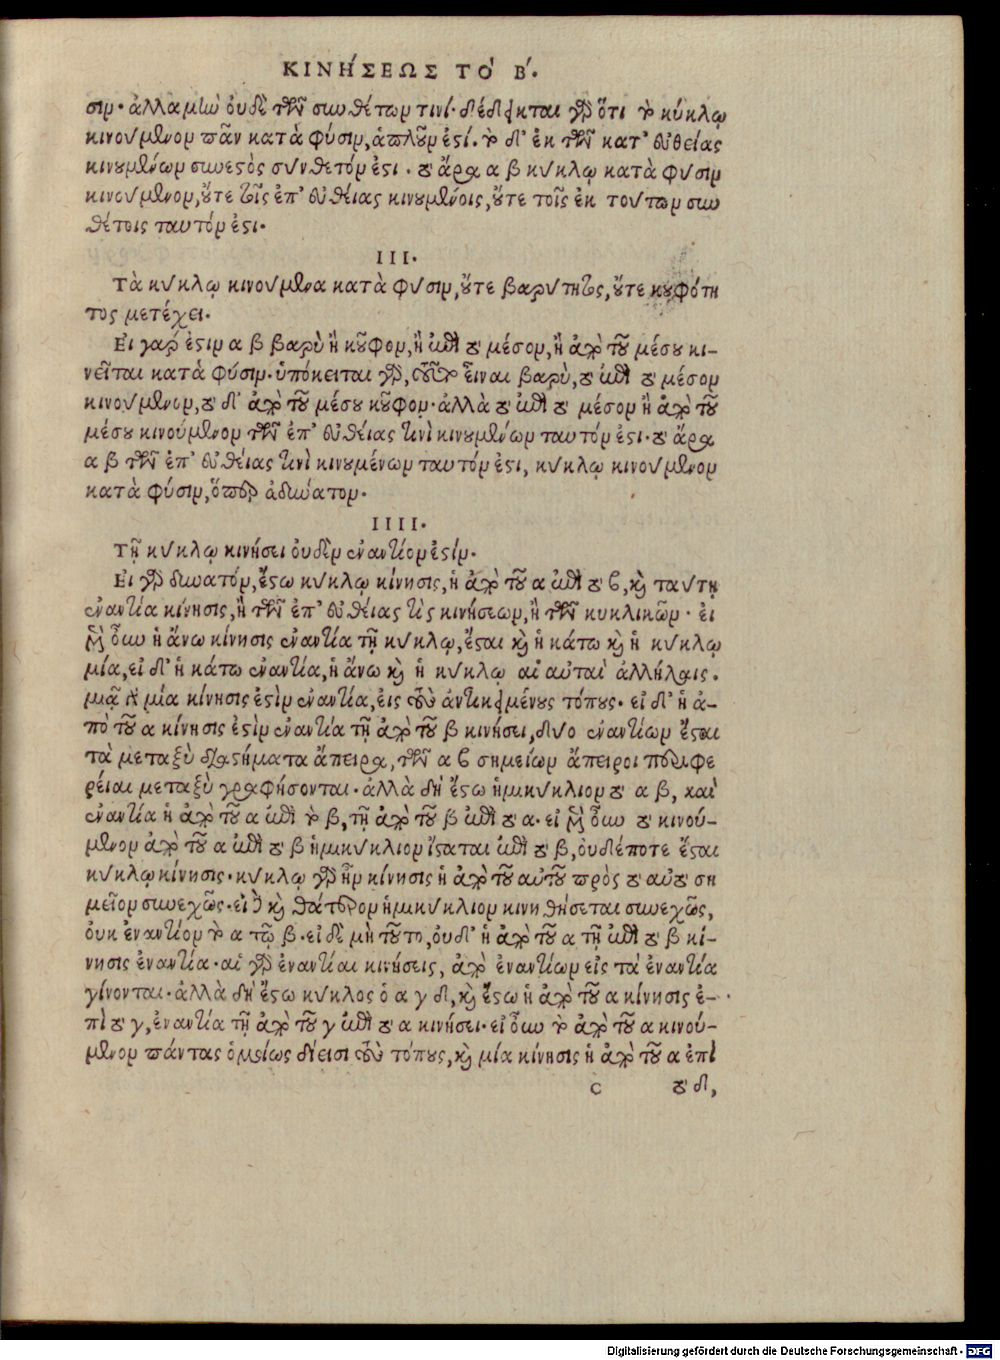 ΚΙΝΉΣΕΩΣ ΤΟ Β.
σιν· ἀλλὰ μὴν οὐδὲ τῶν συνθέτων τινί· δέδεικται γὰρ ὅτι τὸ κύκλῳ
κινούμενον πᾶν κατὰ φύσιν, ἁπλοῦν ἐστί. τὸ δ' ἐκ τῶν κατ' εὐθείας
κινουμένων συνεστὸς σύνθετόν ἐστι. τὸ ἄρα α β κύκλῳ κατὰ φύσιν
κινούμενον, οὔτε τοῖς ἐπ' εὐθείας κινουμένοις, οὔτε τοῖς ἐκ τούτων συν
θέτοις ταυτόν ἐστι.
III.
Τὰ κύκλῳ κινούμενα κατὰ φύσιν, οὔτε βαρύτητος, οὔτε κουφότη
τος μετέχει.
Εἰ γάρ ἐστιν α β βαρὺ ἢ κοῦφον, ἢ ἐπὶ τὸ μέσον, ἢ ἀπὸ τοῦ μέσου κι-
νεῖται κατὰ φύσιν· ὑπόκειται γὰρ, τοῦτο εἶναι βαρὺ, τὸ ἐπὶ τὸ μέσον
κινούμενον, τὸ δ' ἀπὸ τοῦ μέσου κοῦφον· ἀλλὰ τὸ ἐπὶ τὸ μέσον ἢ ἀπὸ τοῦ
μέσου κινούμενον τῶν ἐπ' εὐθείας τινὶ κινουμένων ταυτόν ἐστι· τὸ ἄρα
α β τῶν ἐπ' εὐθείας τινὶ κινουμένων ταυτόν ἐστι, κύκλῳ κινούμενον
κατὰ φύσιν, ὅπερ ἀδύνατον.
IIII.
Τῇ κύκλῳ κινήσει οὐδὲν ἐναντίον ἐστίν.
Εἰ γὰρ δυνατόν, ἔστω κύκλῳ κίνησις, ἡ ἀπὸ τοῦ α ἐπὶ τὸ β, καὶ ταύτῃ
ἐναντία κίνησις, ἢ τῶν ἐπ' εὐθείας τὶς κινήσεων, ἢ τῶν κυκλικῶν· εἰ
μὲν οὖν ἡ ἄνω κίνησις ἐναντία τῇ κύκλῳ, ἔσται καὶ ἡ κάτω καὶ ἡ κύκλῳ
μία, εἰ δ' ἡ κάτω ἐναντία, ἡ ἄνω καὶ ἡ κύκλῳ αἱ αὐταὶ ἀλλήλαις.
μιᾷ γὰρ μία κίνησις ἐστὶν ἐναντία, εἰς τοὺς ἀντικειμένους τόπους· εἰ δ' ἡ ἀ-
πὸ τοῦ α κίνησις ἐστὶν ἐναντία τῇ ἀπὸ τοῦ β κινήσει, δύο ἐναντίων ἔσται
τὰ μεταξὺ διαστήματα ἄπειρα, τῶν α β σημείων ἄπειροι περιφε
ρείαι μεταξὺ γραφήσονται· ἀλλὰ δὴ ἔστω ἡμικύκλιον τὸ α β, καὶ
ἐναντία ἡ ἀπὸ τοῦ α ἐπὶ τὸ β, τῇ ἀπὸ τοῦ β ἐπὶ τὸ α· εἰ μὲν οὖν τὸ κινού-
μενον ἀπὸ τοῦ α ἐπὶ τὸ β ἡμικύκλιον ἵσταται ἐπὶ τὸ β, οὐδέποτε ἔσται
κύκλῳ κίνησις· κύκλῳ γὰρ ἦν κίνησις ἡ ἀπὸ τοῦ αὐτοῦ πρὸς τὸ αὐτὸ ση
μεῖον συνεχῶς· εἰ δὲ καὶ θάτερον ἡμικύκλιον κινηθήσεται συνεχῶς,
οὐκ ἐναντίον τὸ α τῷ β· εἰ δὲ μὴ τοῦτο, οὐδ' ἡ ἀπὸ τοῦ α τῇ ἐπὶ τὸ β κί-
νησις ἐναντία· αἱ γὰρ ἐναντίαι κινήσεις, ἀπὸ ἐναντίων εἰς τὰ ἐναντία
γίνονται· ἀλλὰ δὴ ἔστω κύκλος ὁ α γ δ, καὶ ἔστω ἡ ἀπὸ τοῦ α κίνησις ἐ-
πὶ τὸ γ, ἐναντία τῇ ἀπὸ τοῦ γ ἐπὶ τὸ α κινήσει· εἰ οὖν τὸ ἀπὸ τοῦ α κινού-
μενον πάντας ὁμοίως δίεισι τοὺς τόπους, καὶ μία κίνησις ἡ ἀπὸ τοῦ α ἐπὶ
c τὸ δ,
Digitalisierung gefördert durch die Deutsche Forschungsgemeinschaft - DFG